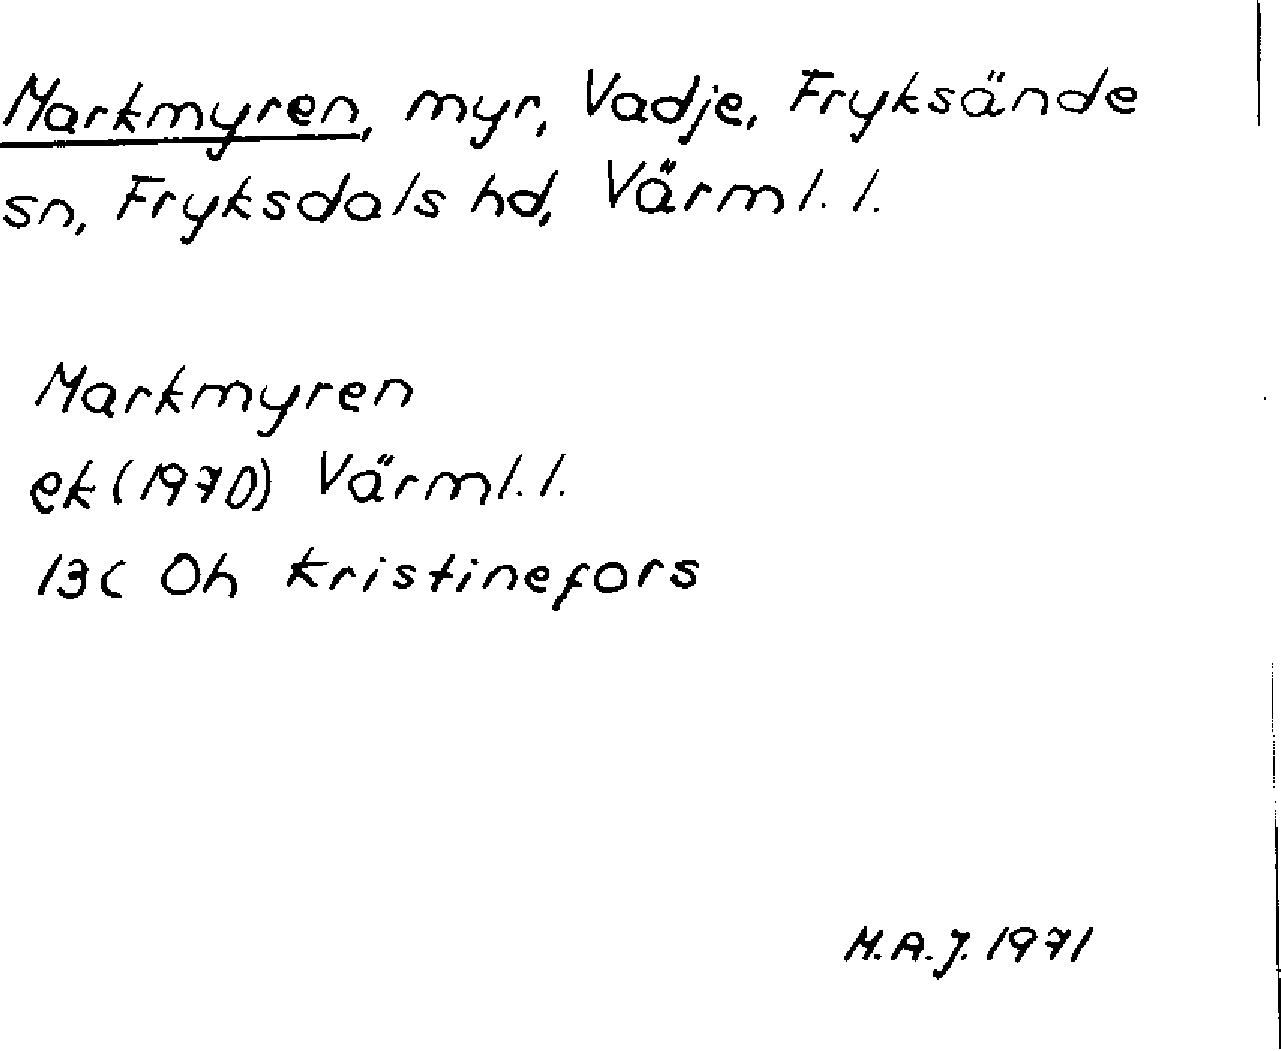 Markmyren, myr, Vadje, Fryksände
sn, Fryksdals hd, Värml. l.
Markmyren
ek (1970) Värml. l.
13C 0h Kristinefors
M.A.J. 1971